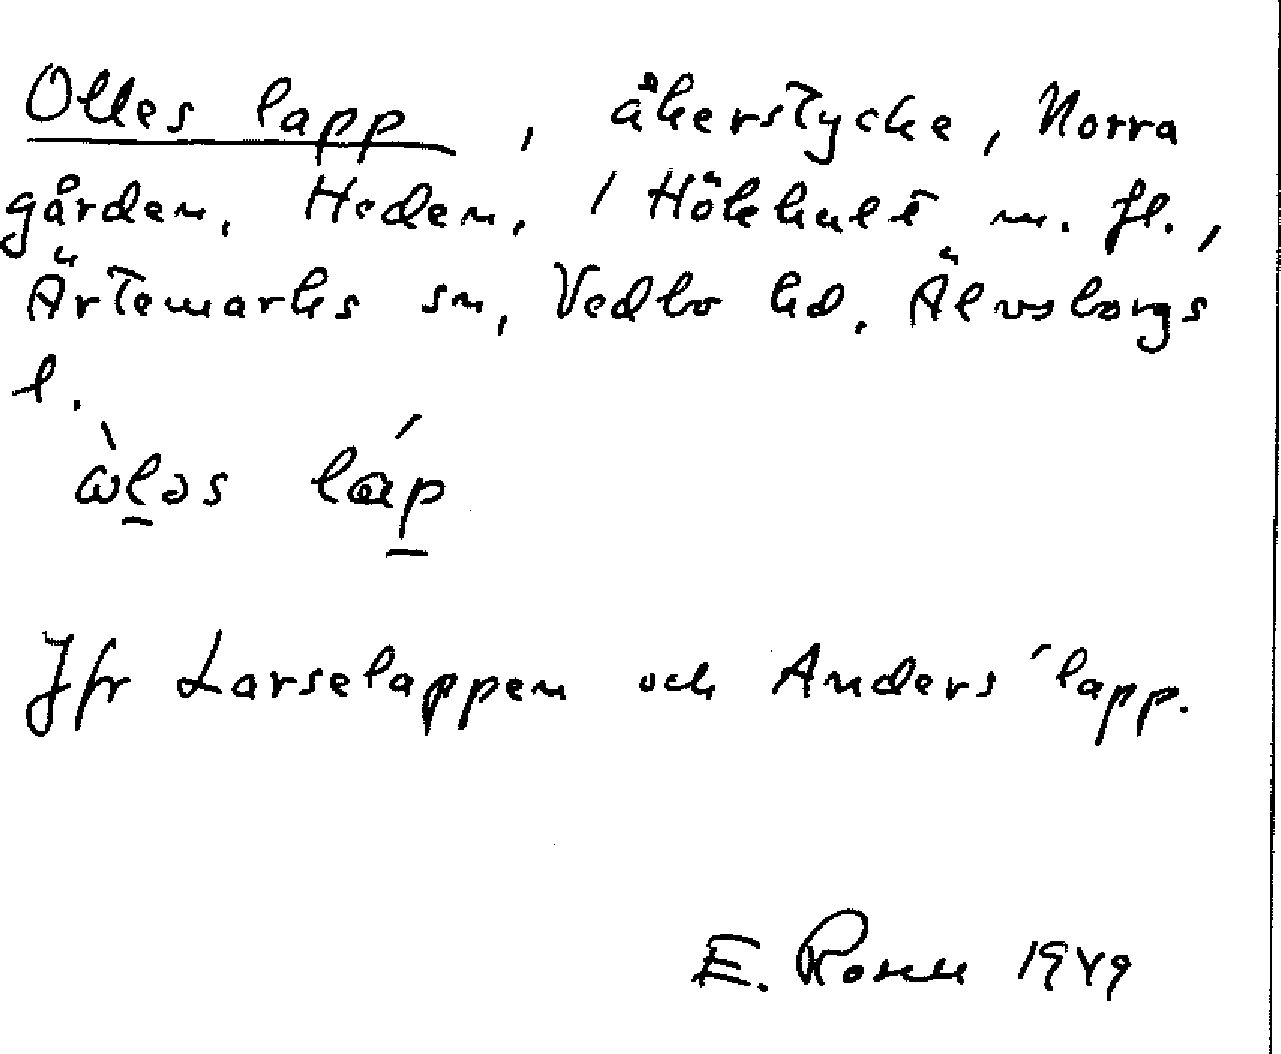 Olles lapp, åkerstycke, Norra
gården, Heden, 1 Hökhult m. fl.,
Ärtemarks sn, Vedbo hd. Älvsborgs
l.
ὼləs láp
Jfr Larselappen och Anders' lapp.
E. 1949